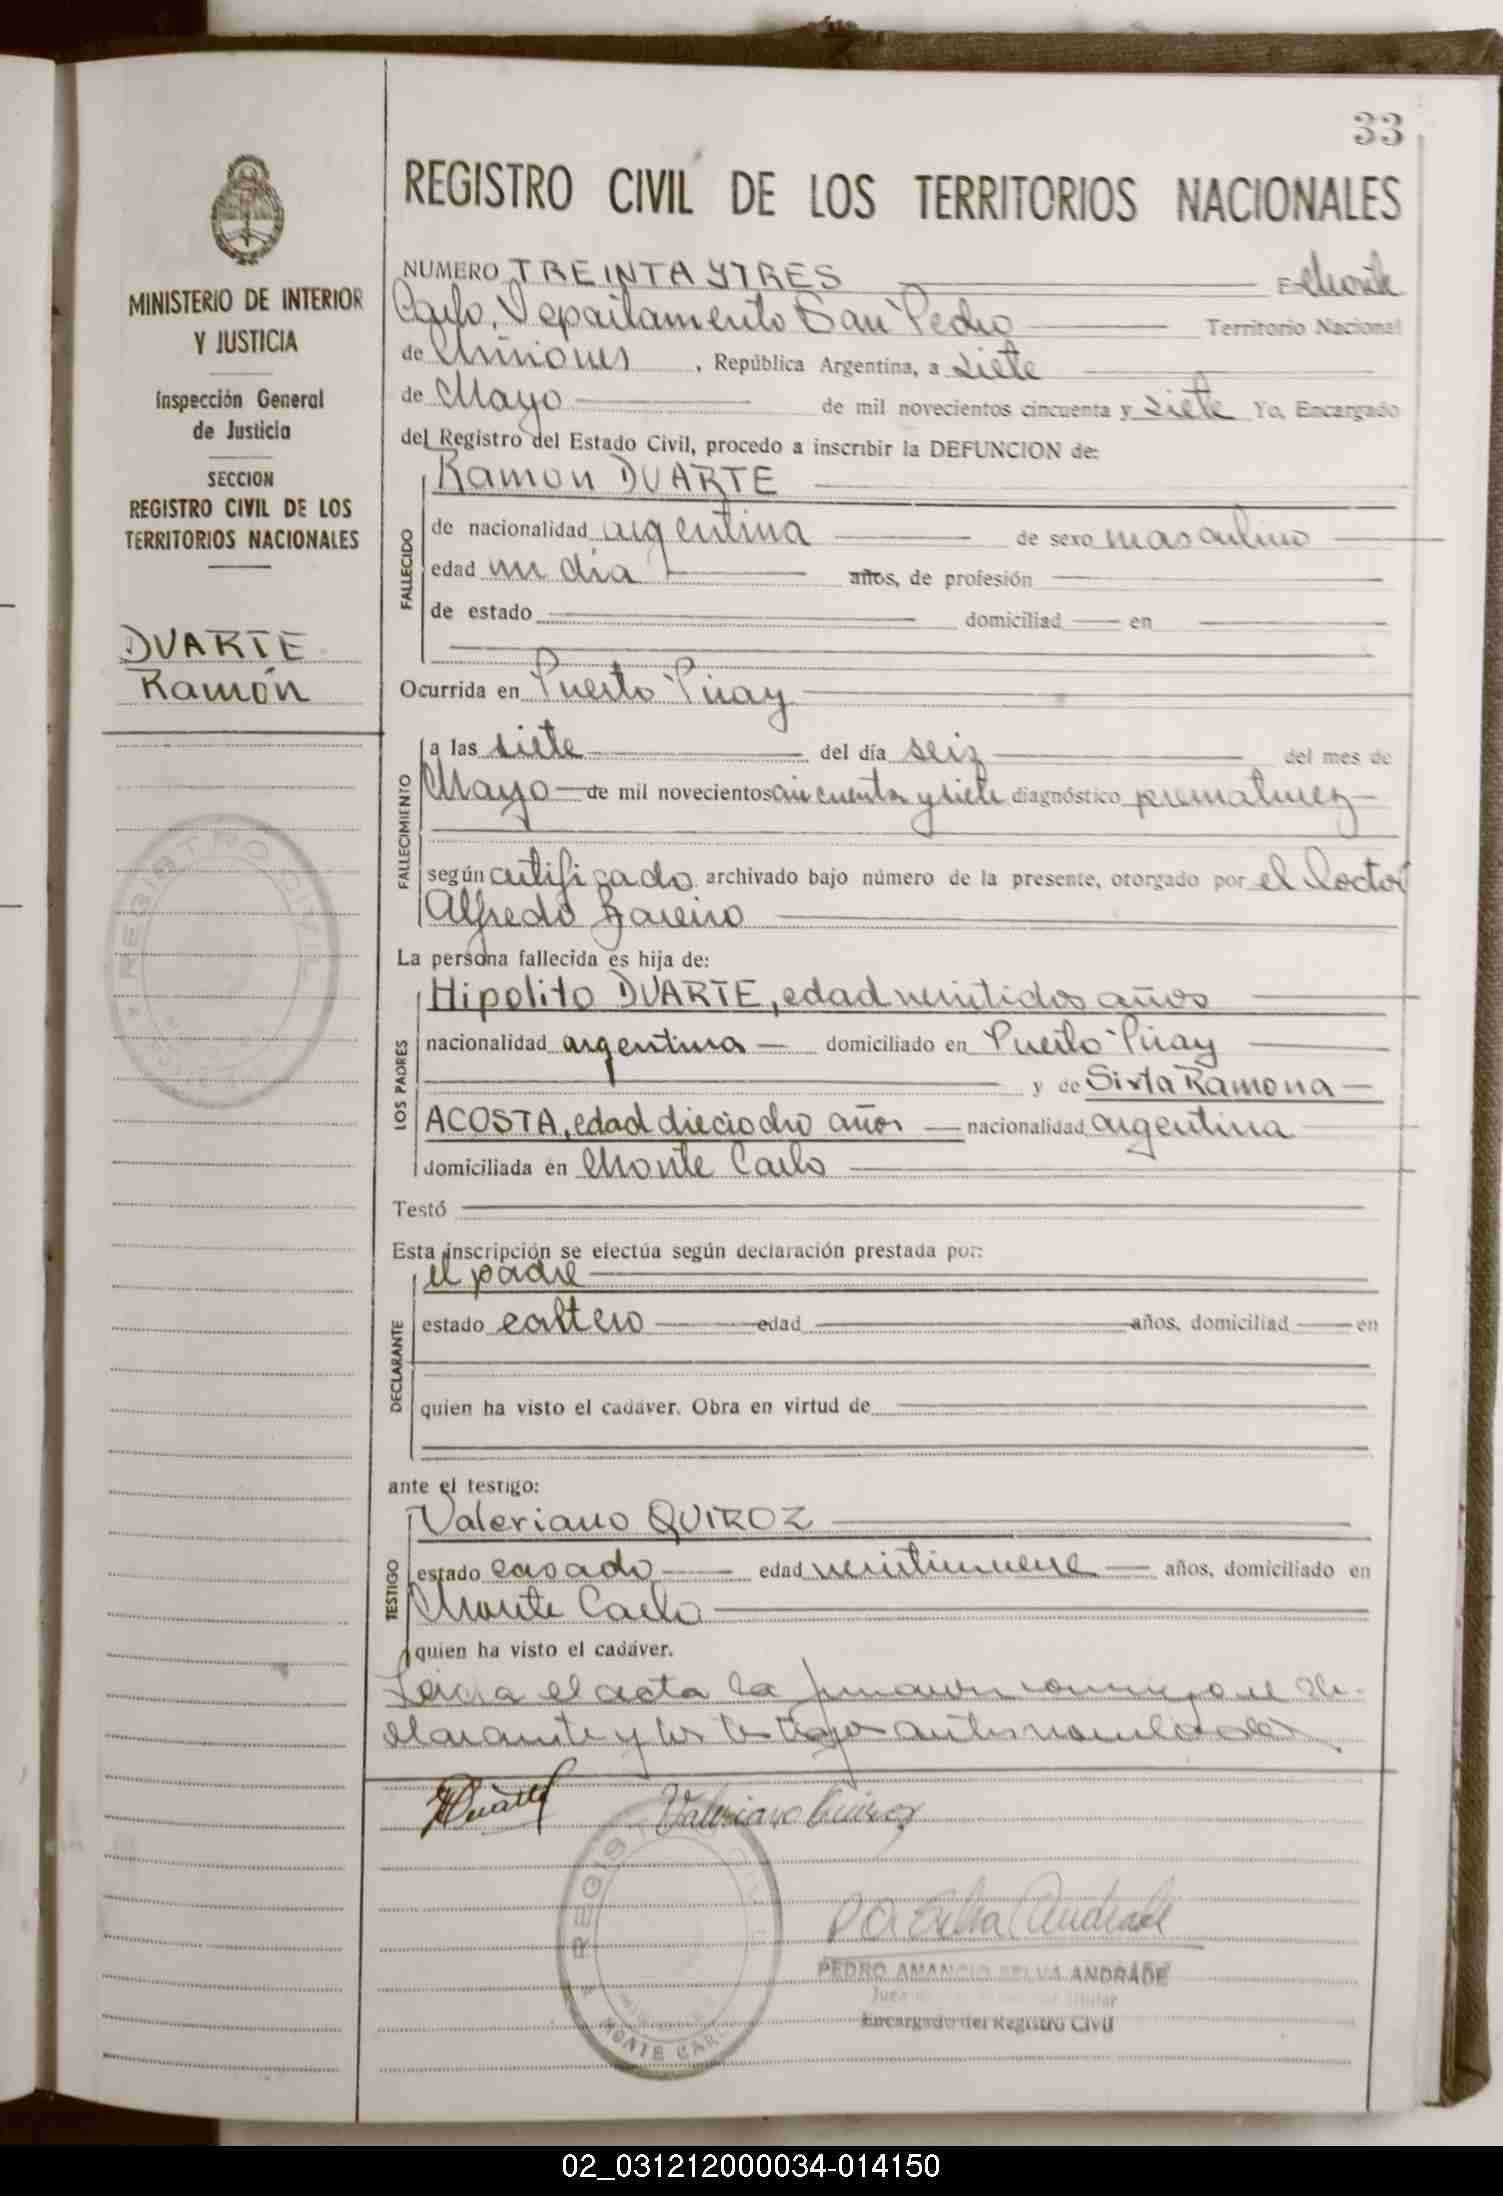 33
REGISTRO CIVIL DE LOS TERRITORIOS NACIONALES
MINISTERIO DE INTERIOR
Y JUSTICIA
Inspección General
de Justicia
SECCION
REGISTRO CIVIL DE LOS
TERRITORIOS NACIONALES
DUARTE
Ramón
NUMERO TREINTA Y TRES En Monte
Carlo, Departamento San Pedro Territorio Nacional
de Misiones, República Argentina, a siete
de Mayo de mil novecientos cincuenta y siete Yo, Encargado
del Registro del Estado Civil, procedo a inscribir la DEFUNCION de:
Ramon DUARTE
FALLECIDO
de nacionalidad argentina de sexo masculino
edad un día años, de profesión
de estado domiciliad en
Ocurrida en Puerto Piray
FALLECIMIENTO
a las siete del día seis del mes de
Mayo de mil novecientos cincuenta y siete diagnóstico prematurez
según certificado archivado bajo número de la presente, otorgado por el Doctor
Alfredo
La persona fallecida es hija de:
LOS PADRES
Hipolito DUARTE, edad veintidos años
nacionalidad argentina domiciliado en Puerto Piray
y de Sixta Ramona
ACOSTA, edad dieciocho años nacionalidad argentina
domiciliada en Monte Carlo
Testó
Esta inscripción se efectúa según declaración prestada por:
el padre
DECLARANTE
estado soltero edad años, domiciliad en
quien ha visto el cadáver. Obra en virtud de
ante el testigo:
Valeriano QUIROZ
TESTIGO
estado casado edad veintinueve años, domiciliado en
Monte Carlo
quien ha visto el cadáver.
el acta la firmaron conmigo el de-
clarante y los testigos antes nombrados
HDuarte Valeriano Quiroz
REGISTRO CIVIL
MISIONES
MONTE CARLO
PEDRO AMANCIO SELVA ANDRADE
Juez Titular
Encargado del Registro Civil
02_031212000034-014150